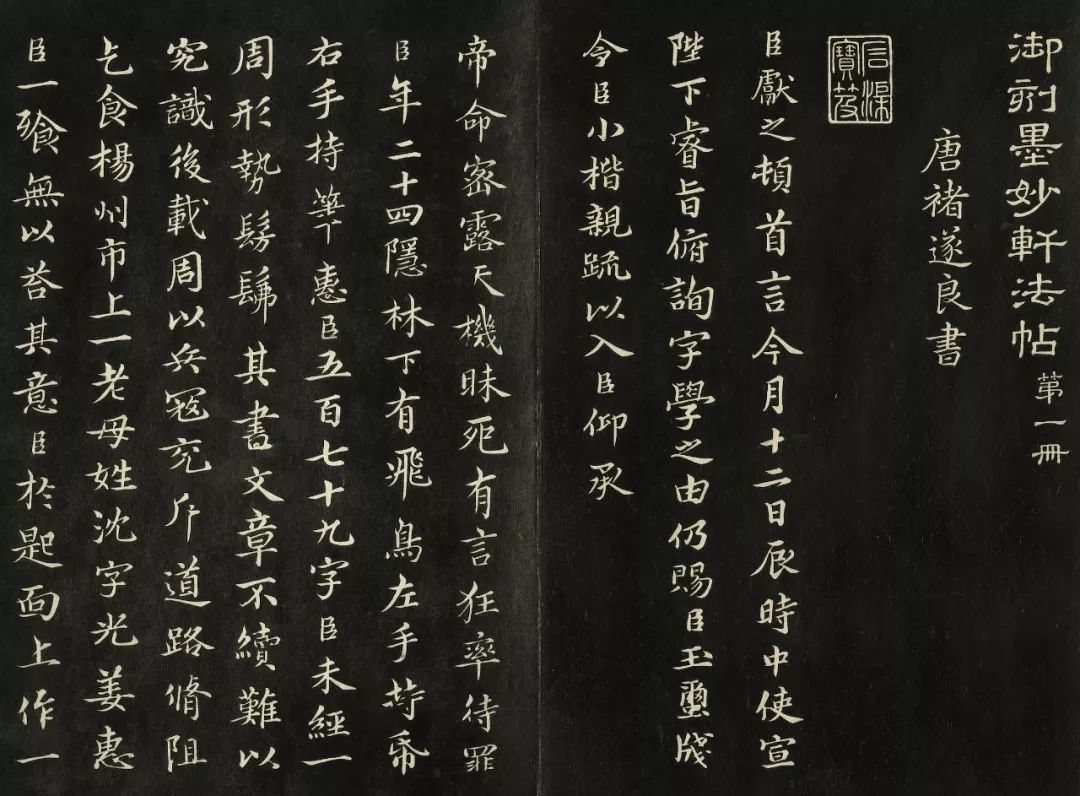 御刻墨妙軒法帖 第一冊
唐褚遂良書
臣獻之頓首言今月十二日辰時中使宣
陛下睿旨俯詢字學之由仍賜臣玉璽牋
令臣小楷親疏以入臣仰承
帝命密露天機昧死有言狂率待罪
臣年二十四隱林下有飛鳥左手持帋
右手持筆惠臣五百七十九字臣未經一
周形勢髣髴其書文章不續難以
究識後載周以兵寇充斥道路脩阻
乞食楊州市上一老母姓沈字光姜惠
臣一飱無以荅其意臣於匙面上作一